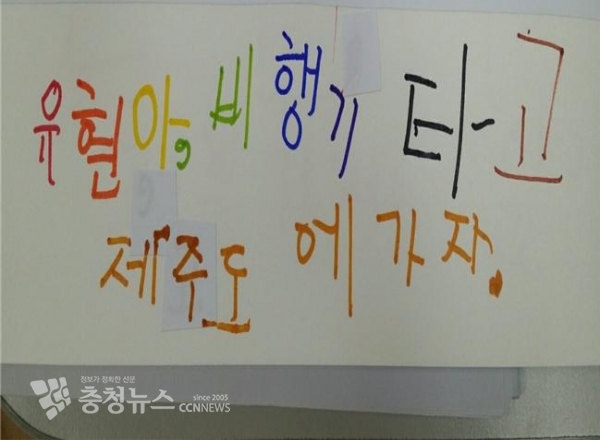 유현아, 비행기 타고
제주도에 가자.
정보가 정확한 신문
충청뉴스
since 2005
CCNNEWS